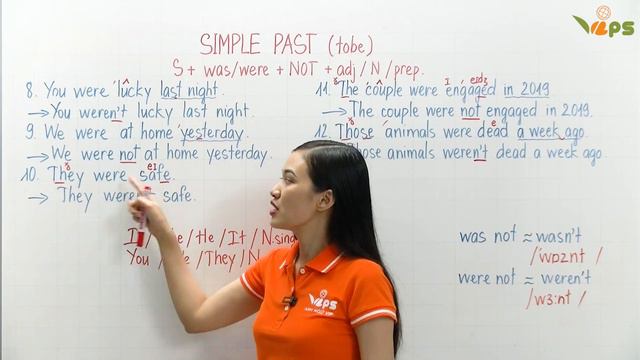 VIPS
SIMPLE PAST (tobe)
S + was/were + NOT + adj / N / prep.
8. You were lucky last night.
→ You weren't lucky last night.
9. We were at home yesterday.
→ We were not at home yesterday.
10. They were safe.
→ They weren't safe.
11. The couple were engaged in 2019
→ The couple were not engaged in 2019.
12. Those animals were dead a week ago.
Those animals weren't dead a week ago
I / /He / It / N.sing
You / /They / N
was not ≈ wasn't
/ˈwɒznt /
were not ≈ weren't
/wɜ:nt /
VIPS